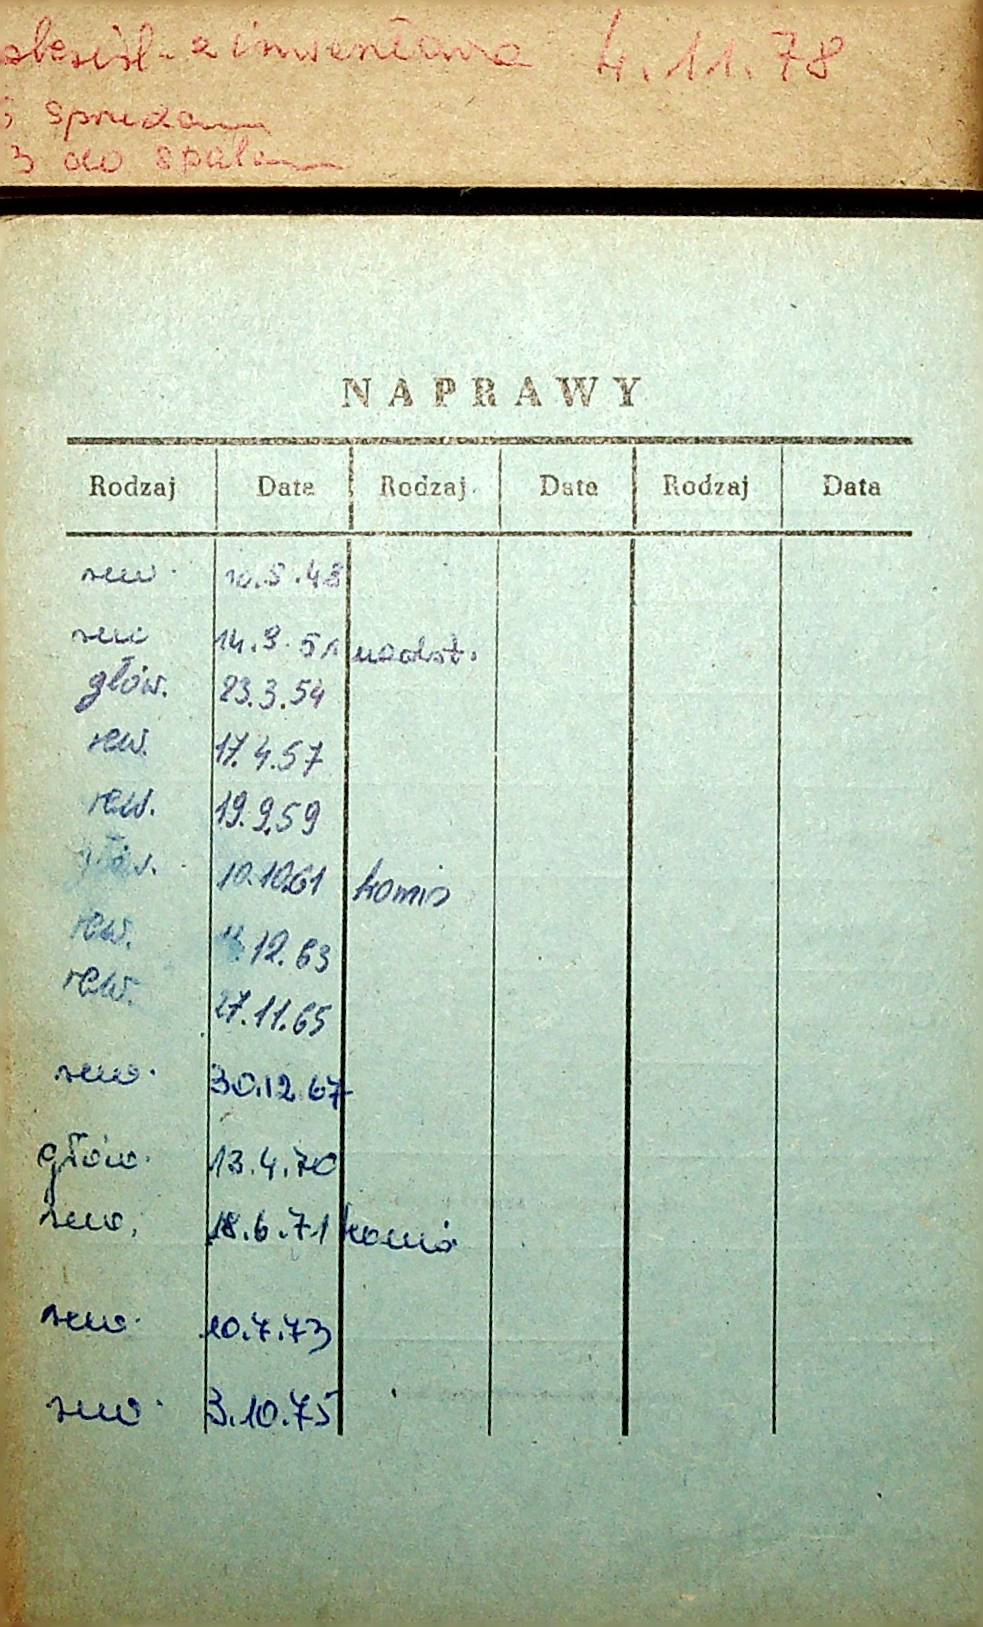 skreśl. z inwentarza 4.11.78
sprzedano
3 do spalen
NAPRAWY
Rodzaj Data Rodzaj Data Rodzaj Data
rew. 10.8.48
rew 14.9.51 nadst.
głów. 23.3.54
rew. 17.4.57
rew. 19.9.59
głów. 10.10.61 komis
rew. 12.63
rew. 27.11.65
rew. 30.12.67
głów. 13.4.70
rew. 18.6.71 komis
rew. 10.7.73
rew. 3.10.75